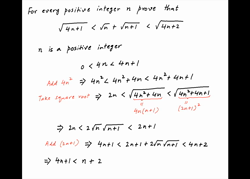 For every positive integer n prove that
√4n+1 < √n + √n+1 < √4n+2
n is a positive integer
0 < 4n < 4n+1
Add 4n² ⇒ 4n² < 4n²+4n < 4n²+4n+1
Take square root ⇒ 2n < √4n²+4n < √4n²+4n+1
4n(n+1) (2n+1)²
⇒ 2n < 2√n √n+1 < 2n+1
Add (2n+1) ⇒ 4n+1 < 2n+1+2√n √n+1 < 4n+2
⇒ 4n+1 < n + 2